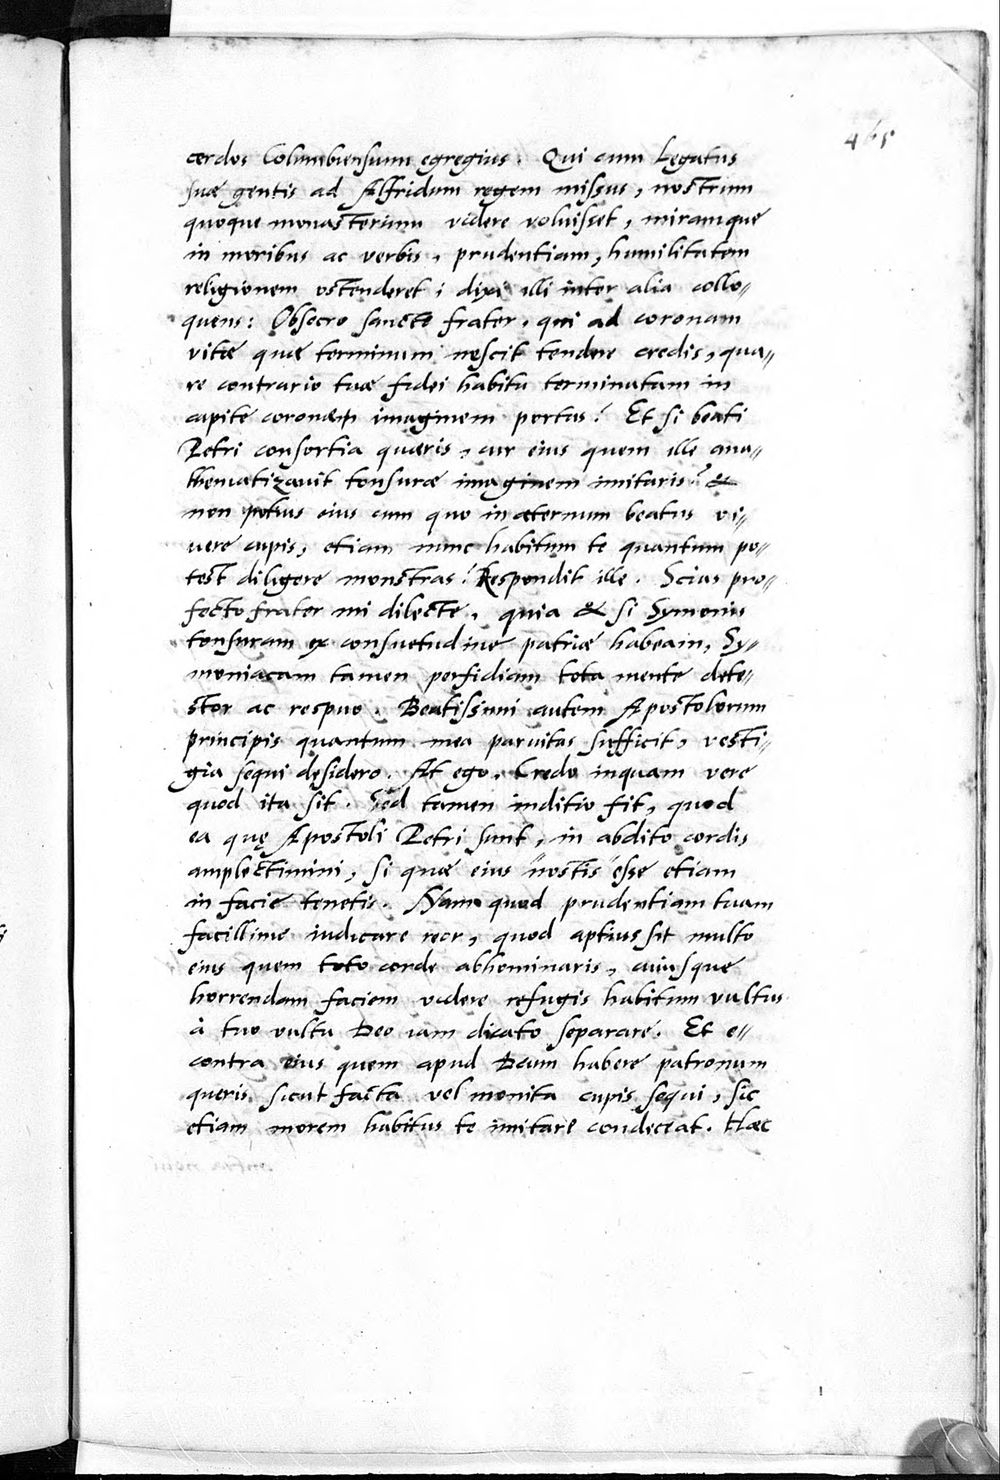 465
cerdos Columbiensium egregius. Qui cum Legatus
suæ gentis ad Alfridum regem missus, nostrum
quoque monasterium videre voluisset, miramque
in moribus ac verbis, prudentiam, humilitatem
religionem ostenderet; dixi illi inter alia collo-
quens: Obsecro sancte frater, qui ad coronam
vitæ quæ terminum nescit tendere credis, qua-
re contrario tuæ fidei habitu terminatam in
capite coronæ imaginem portas? Et si beati
Petri consortia quæris, cur eius quem ille ana-
thematizavit tonsuræ imaginem imitaris? &
non potius eius cum quo in æternum beatus vi-
vere cupis, etiam nunc habitum te quantum po-
test diligere monstras? Respondit ille. Scias pro-
fecto frater mi dilecte, quia & si Symonis
tonsuram ex consuetudine patriæ habeam, Sy-
moniacam tamen perfidiam tota mente dete-
stor ac respuo. Beatissimi autem Apostolorum
principis quantum mea parvitas sufficit, vesti-
gia sequi desidero. At ego, Credo inquam vere
quod ita sit. Sed tamen inditio fit, quod
ea quę Apostoli Petri sunt, in abdito cordis
amplectimini, si quæ eius nostis esse etiam
in facie tenetis. Nam quod prudentiam tuam
facillime iudicare reor, quod aptius sit multo
eius quem toto corde abhominaris, cuiusque
horrendam faciem videre refugis habitum vultus
à tuo vultu Deo iam dicato separare. Et e-
contra eius quem apud Deum habere patronum
queris, sicut facta vel monita cupis sequi, sic
etiam morem habitus te imitare condeceat. Hæc